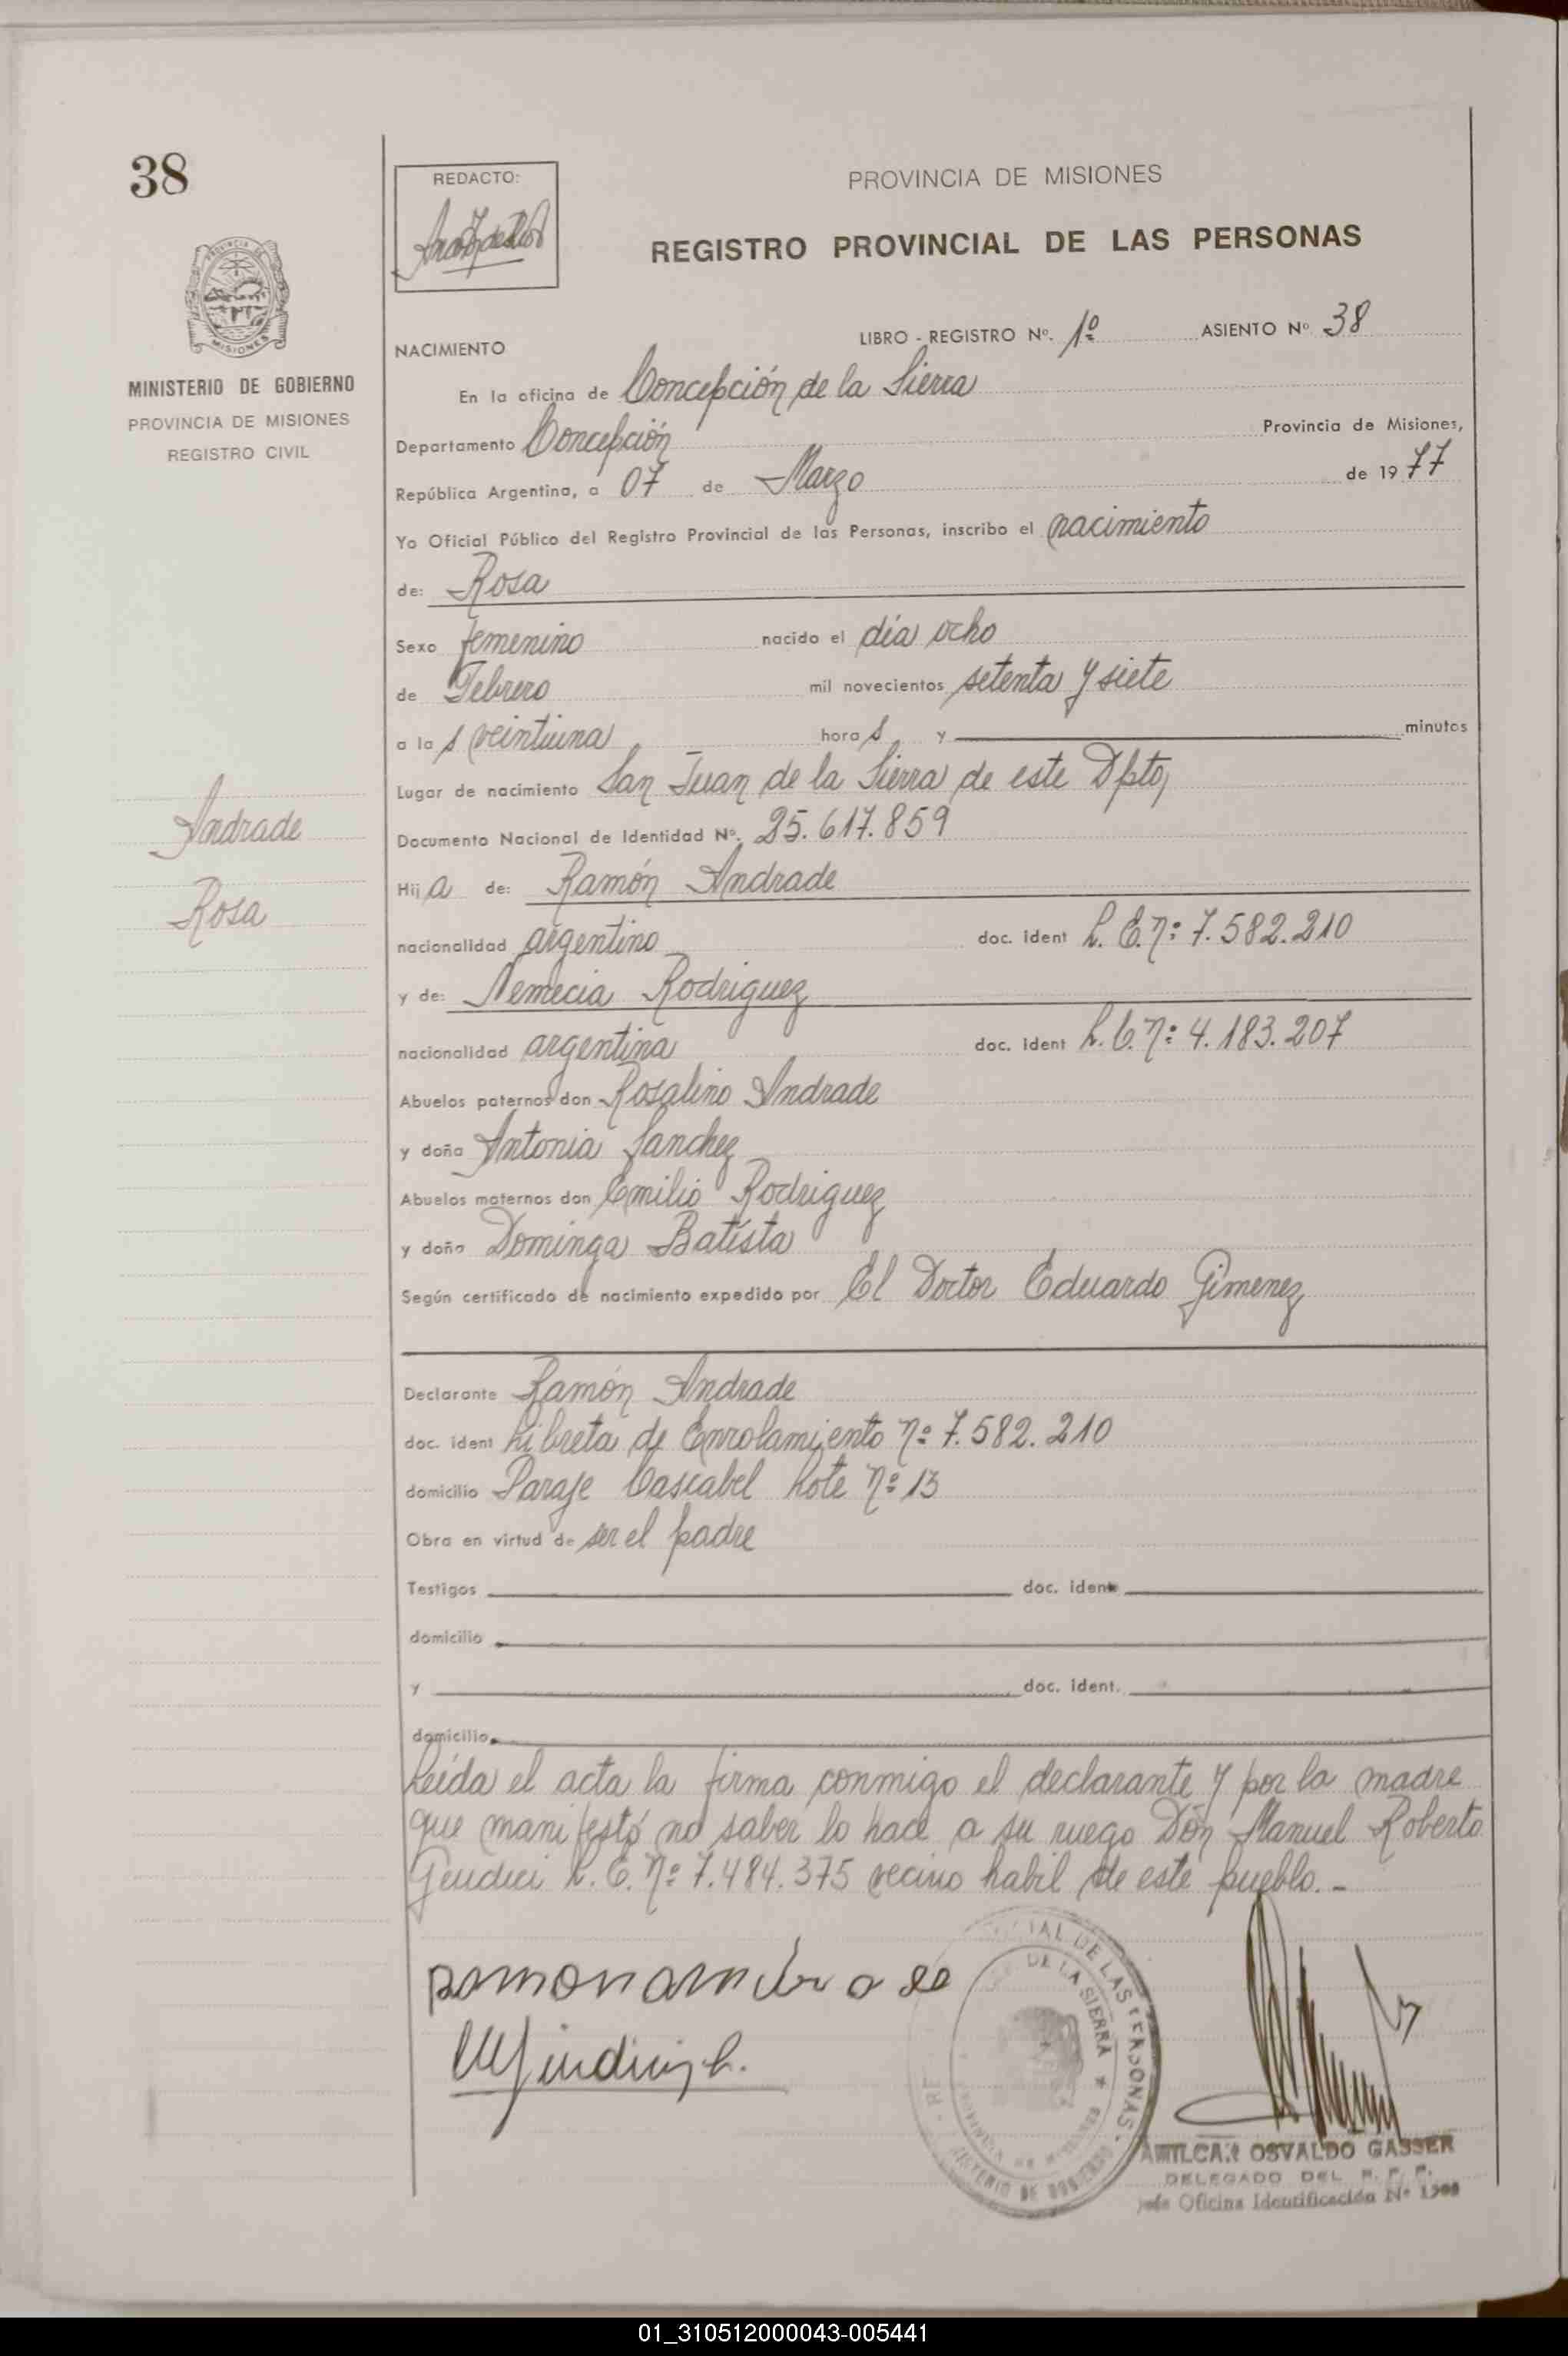 38
REDACTO:
PROVINCIA DE MISIONES
REGISTRO PROVINCIAL DE LAS PERSONAS
MISIONES
MINISTERIO DE GOBIERNO
PROVINCIA DE MISIONES
REGISTRO CIVIL
LIBRO - REGISTRO Nº. 1º ASIENTO Nº 38
NACIMIENTO
En la oficina de Concepción de la Sierra
Departamento Concepción Provincia de Misiones,
República Argentina, a 07 de Marzo de 1977
Yo Oficial Público del Registro Provincial de las Personas, inscribo el nacimiento
de: Rosa
Sexo femenino nacido el día ocho
de Febrero mil novecientos setenta y siete
a las veintiuna horas y minutos
Lugar de nacimiento San Juan de la Sierra de este Dpto,
Documento Nacional de Identidad Nº. 25.617.859
Andrade
Rosa
Hija de: Ramón Andrade
nacionalidad argentino doc. ident L. E. nº 7.582.210
y de: Nemecia Rodriguez
nacionalidad argentina doc. ident L. C. nº 4.183.207
Abuelos paternos don Rosalino Andrade
y doña Antonia Sanchez
Abuelos maternos don Emilio Rodriguez
y doña Dominga Batista
Según certificado de nacimiento expedido por El Doctor Eduardo Gimenez
Declarante Ramón Andrade
doc. ident Libreta de Enrolamiento nº 7.582.210
domicilio Paraje Cascabel Lote nº 13
Obra en virtud de ser el padre
Testigos doc. ident
domicilio
y doc. ident.
domicilio
Leída el acta la firma conmigo el declarante y por la madre
que manifestó no saber lo hace a su ruego Don Manuel Roberto
L. E. nº 7.484.375 vecino habil de este pueblo. -
DE LAS PERSONAS
DE LA SIERRA
AMILCAR OSVALDO GASSER
DELEGADO DEL R. P. P.
Jefe Oficina Identificación Nº
01_310512000043-005441